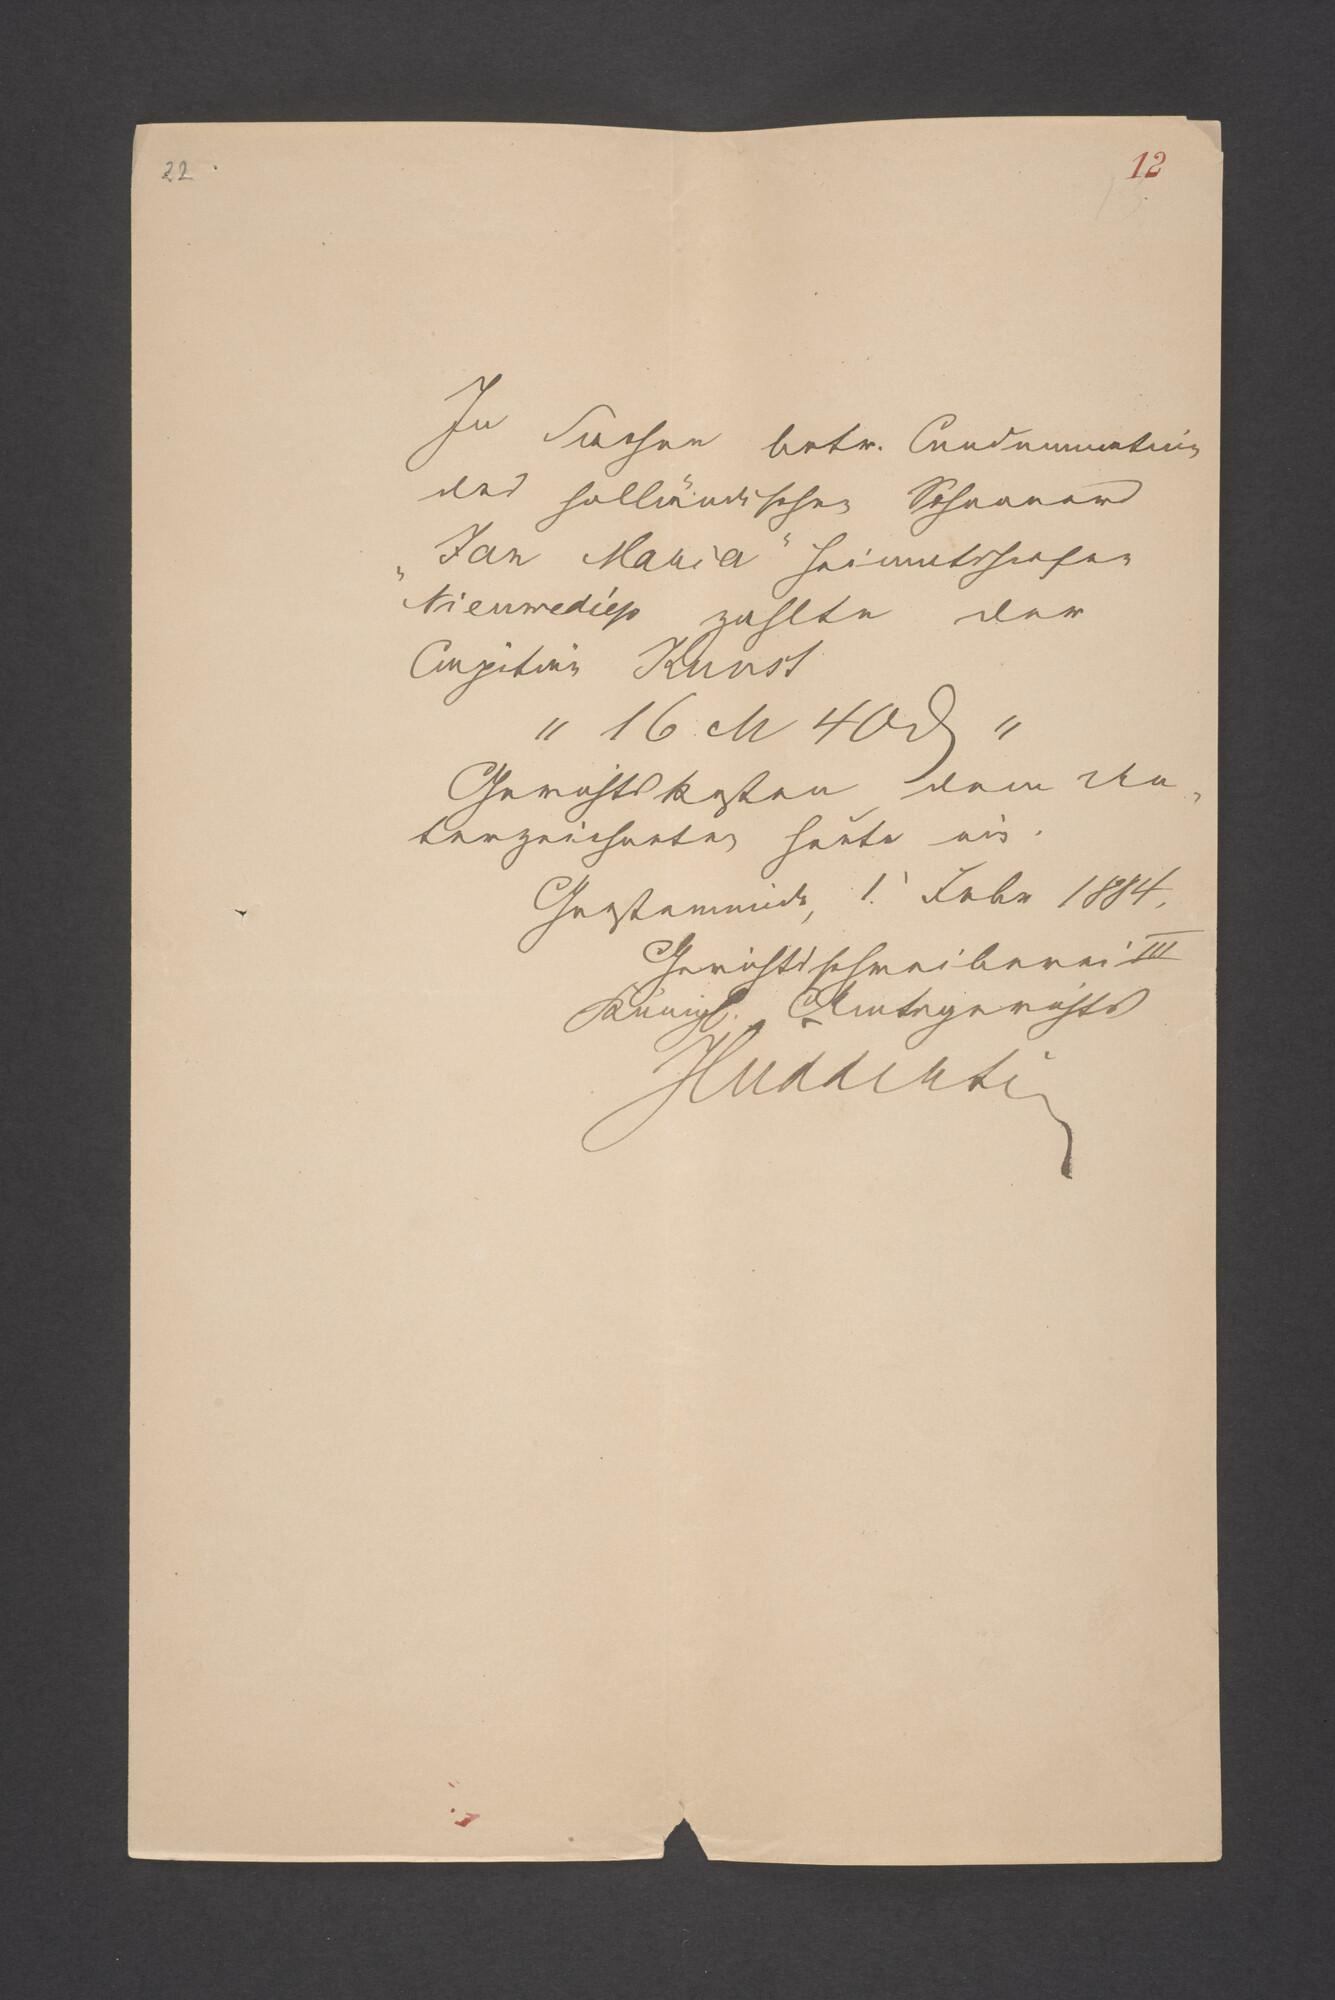 22
12
In Sachen betr. Condemnation
des holländischen Schooners
„Jan Maria“ heimatshafen
Nieuwediep zahlte der
Capitain Kunst
„ 16 M 40 ₰ „
Gerichtskosten dem Un-
terzeichneten heute ein.
Geestemünde, 1. Febr 1884.
Gerichtsschreiberei III
Königl. Amtsgerichts